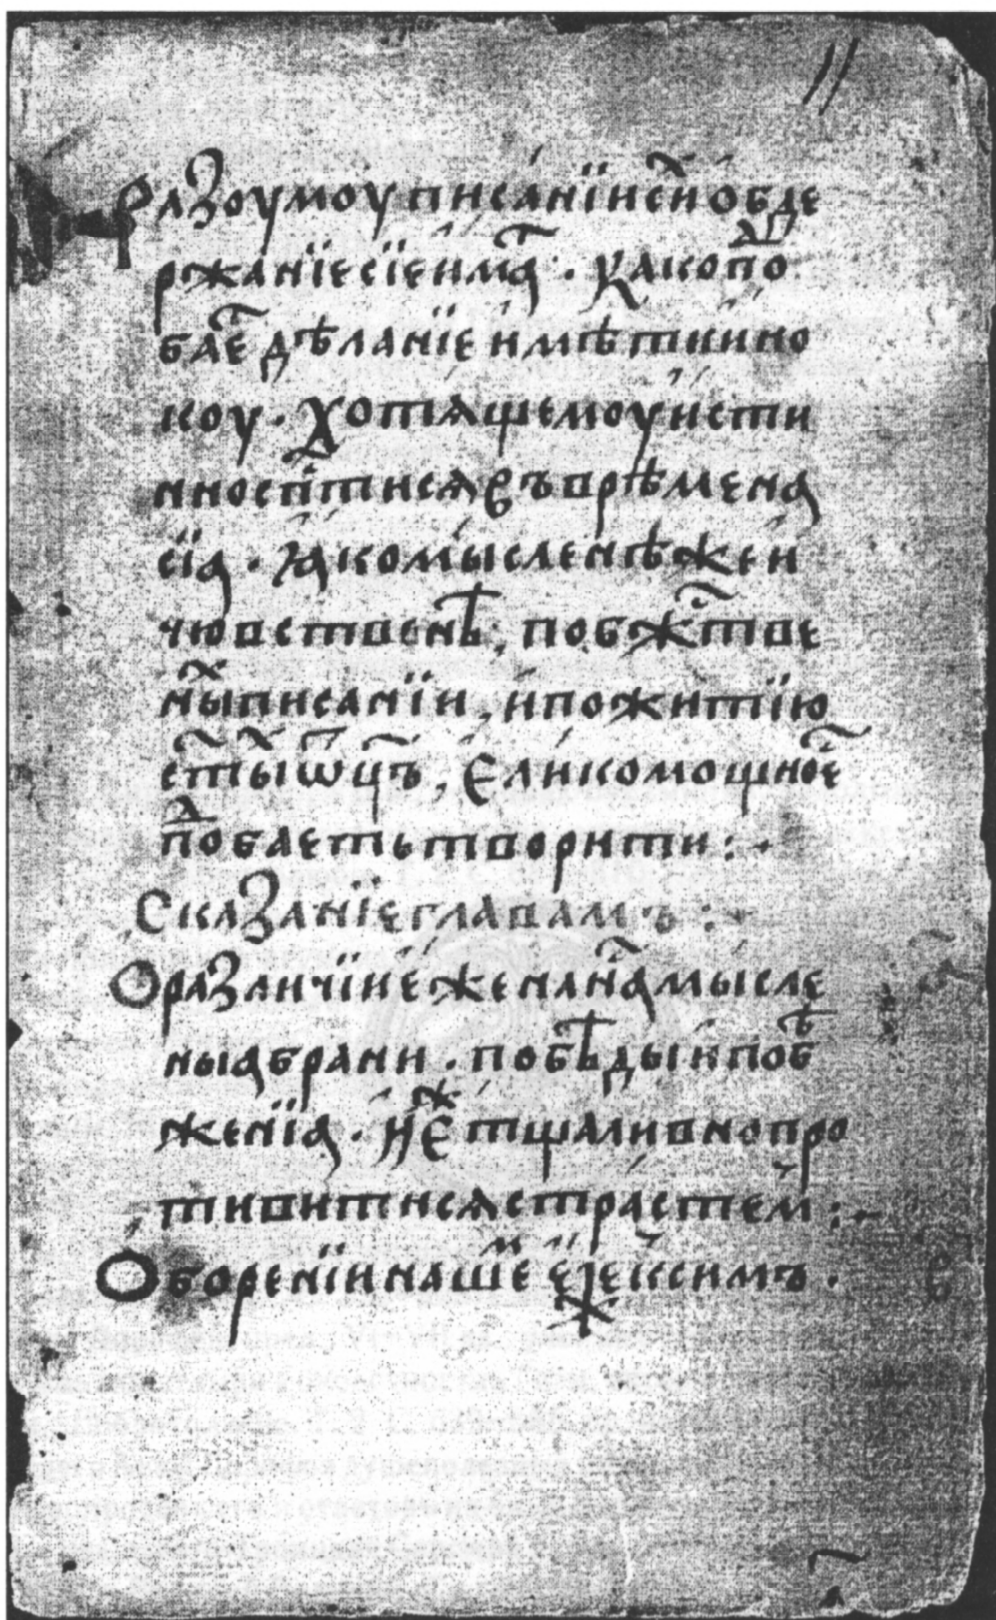 11
Разоумоу писанїи сн҃ обде
ржанїе сїе имаⷮ . како поⷣ
баеⷮ дѣланїе имѣти ино
коу . хотѧщемоу исти
нно сп҃тисѧ въ врѣмена
сїа . ꙗко мысленѣ же и
чювственѣ, по бжⷭ҇тве
ныⷯ писанїи, и по житїю
ст҃ыⷯ ѿц҃ъ, елико мощноеⷭ҇
поⷣбаеть творити :
Сказанїе главамъ :
О различїи еже на наⷭ҇ мысле
ныа брани . побѣды и побѣ
женїа . и еⷤ тщаливно про
тивитисѧ страстем :
О боренїи нашеⷨ еже к симъ .